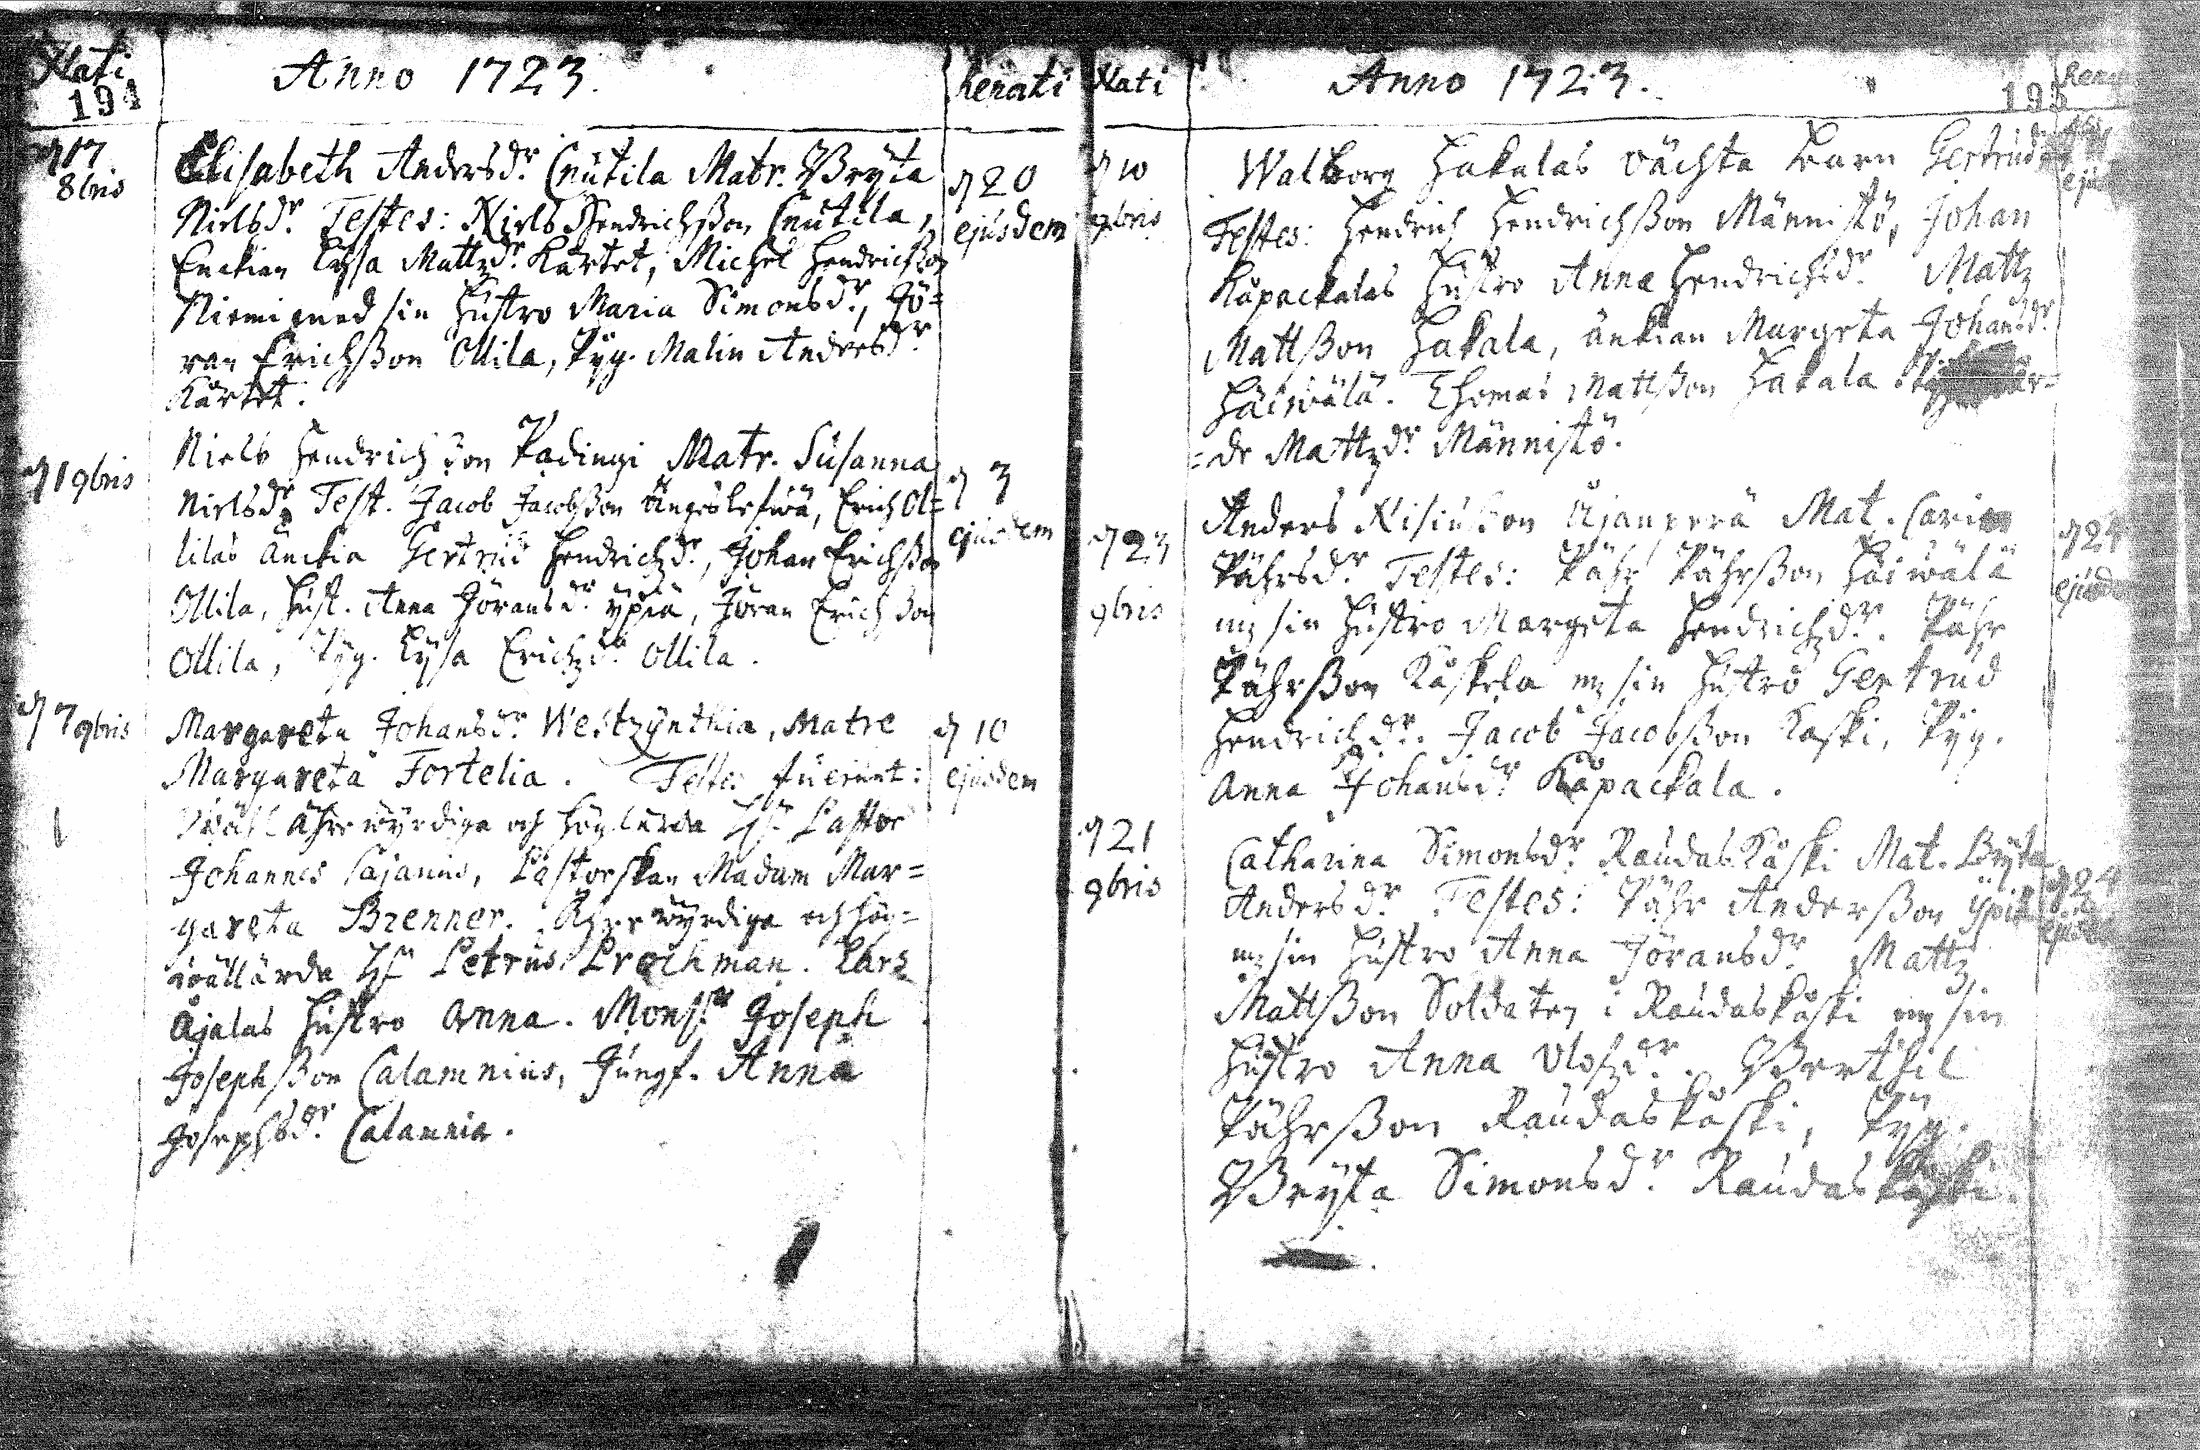 Nati
194
Anno 1723.
Renati
d 17
8bris
Elisabeth Andersdr Cnutila Matr. Bryta
Nielsdr. Testes: Niels Hendrichsson Cnutila,
Enckian Lysa Mattzdr Kärtet, Michel Hendrichsson
Niemi med sin Hustro Maria Simonsdr, Jö=
ran Erichsson Ollila, Pyg. Malin Andersdr
Kärtet.
d 20
ejusdem
d 1 9bris
Niels Hendrichsson Padingi Matr. Susanna
Nielsdr. Test. Jacob Jacobsson Ängeslefwä, Erich Ol=
lilas änckia Gertrud Hendrichzdr, Johan Erichsson
Ollila, Hust. Anna Göransdr ÿpiä, Jöran Erichsson
Ollila, Pyg. Lysa Erichzdr Ollila.
d 3
ejusdem
d 7 9bris
Margareta Johansdr Westzynthia, Matre
Margareta Fortelia. Testes fuerunt:
Wäl ährewyrdige och höglärda Hr Pastor
Johannes Cajanus, Pastorskan Madam Mar=
gareta Brenner. Ährewyrdige och hög=
wällärde Hr Petrus Prochman. Lars
Åjalas Hustro Anna. Monsr Joseph
Josephsson Calamnius, Jungf. Anna
Josephsdr Calamnia.
d 10
ejusdem
Nati
Anno 1723.
195
d 10
9bris
Walborg Hakalas oächta barn Gertrud
Testes: Hendrich Hendrichsson Männistö, Johan
Kåpackalas Hustro Anna Hendrichsdr Mattz
Mattsson Hakala, änkian Margeta Johansdr
Häiwälä. Thomas Mattsson Hakala
=de Mattzdr Männistö.
d 23
9bris
Anders Nisiusson Åjanperä Mat. Carin
Pährsdr. Testes: Pähr Pährsson Häiwälä
mz sin Hustro Margeta Hendrichzdr. Pähr
Pährsson Kåskela mz sin Hustro Gertrud
Hendrichdr. Jacob Jacobsson Kaski, Pyg.
Anna Johansdr Kåpackala.
d 24
d 21
9bris
Catharina Simonsdr Raudaskåski Mat. Bryta
Andersdr. Testes: Pähr Andersson
mz sin Hustro Anna Jöransdr Mattz
Mattsson Soldaten i Raudaskåski mz sin
Hustro Anna Olofzdr. Berthil
Pährsson Raudaskåski, Pyg.
Bryta Simonsdr Raudaskåski.
d 24